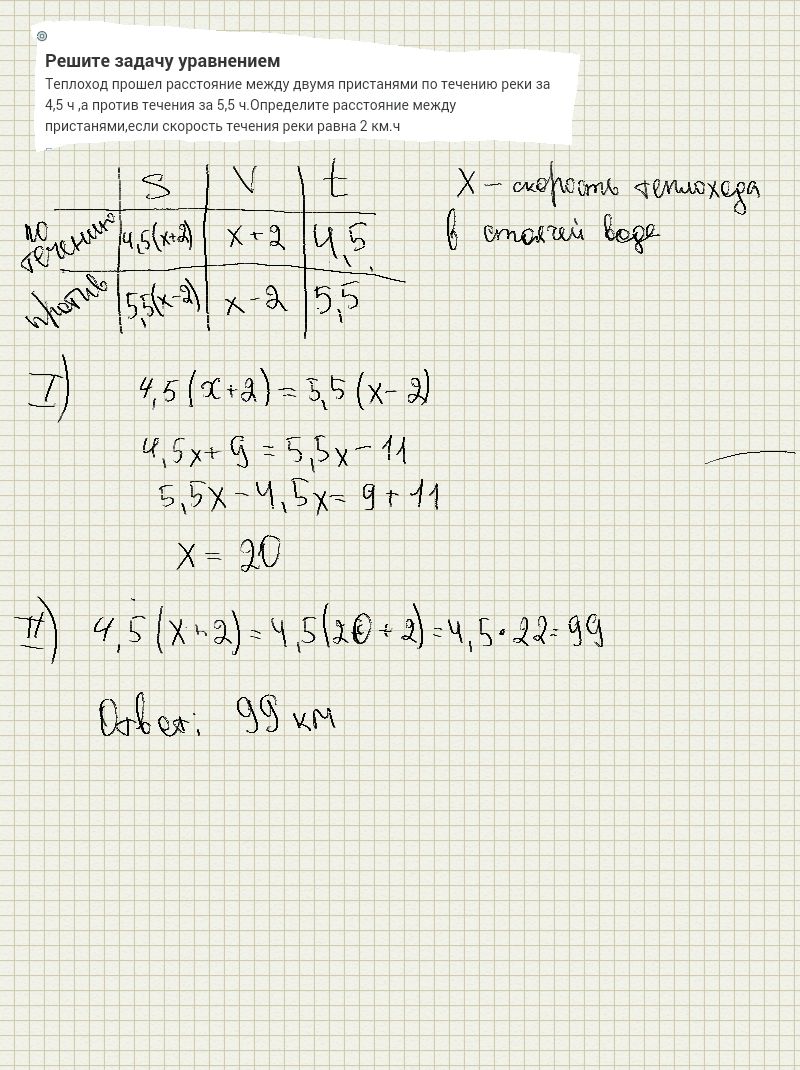 Решите задачу уравнением
Теплоход прошел расстояние между двумя пристанями по течению реки за
4,5 ч ,а против течения за 5,5 ч.Определите расстояние между
пристанями,если скорость течения реки равна 2 км.ч
S V t
по течению 4,5(x+2) x+2 4,5
против 5,5(x-2) x-2 5,5
X - скорость теплохода
в стоячей воде
I) 4,5(x+2) = 5,5(x-2)
4,5x+9 = 5,5x-11
5,5x-4,5x= 9+11
x = 20
II) 4,5(x+2)=4,5(20+2)=4,5·22=99
Ответ: 99 км